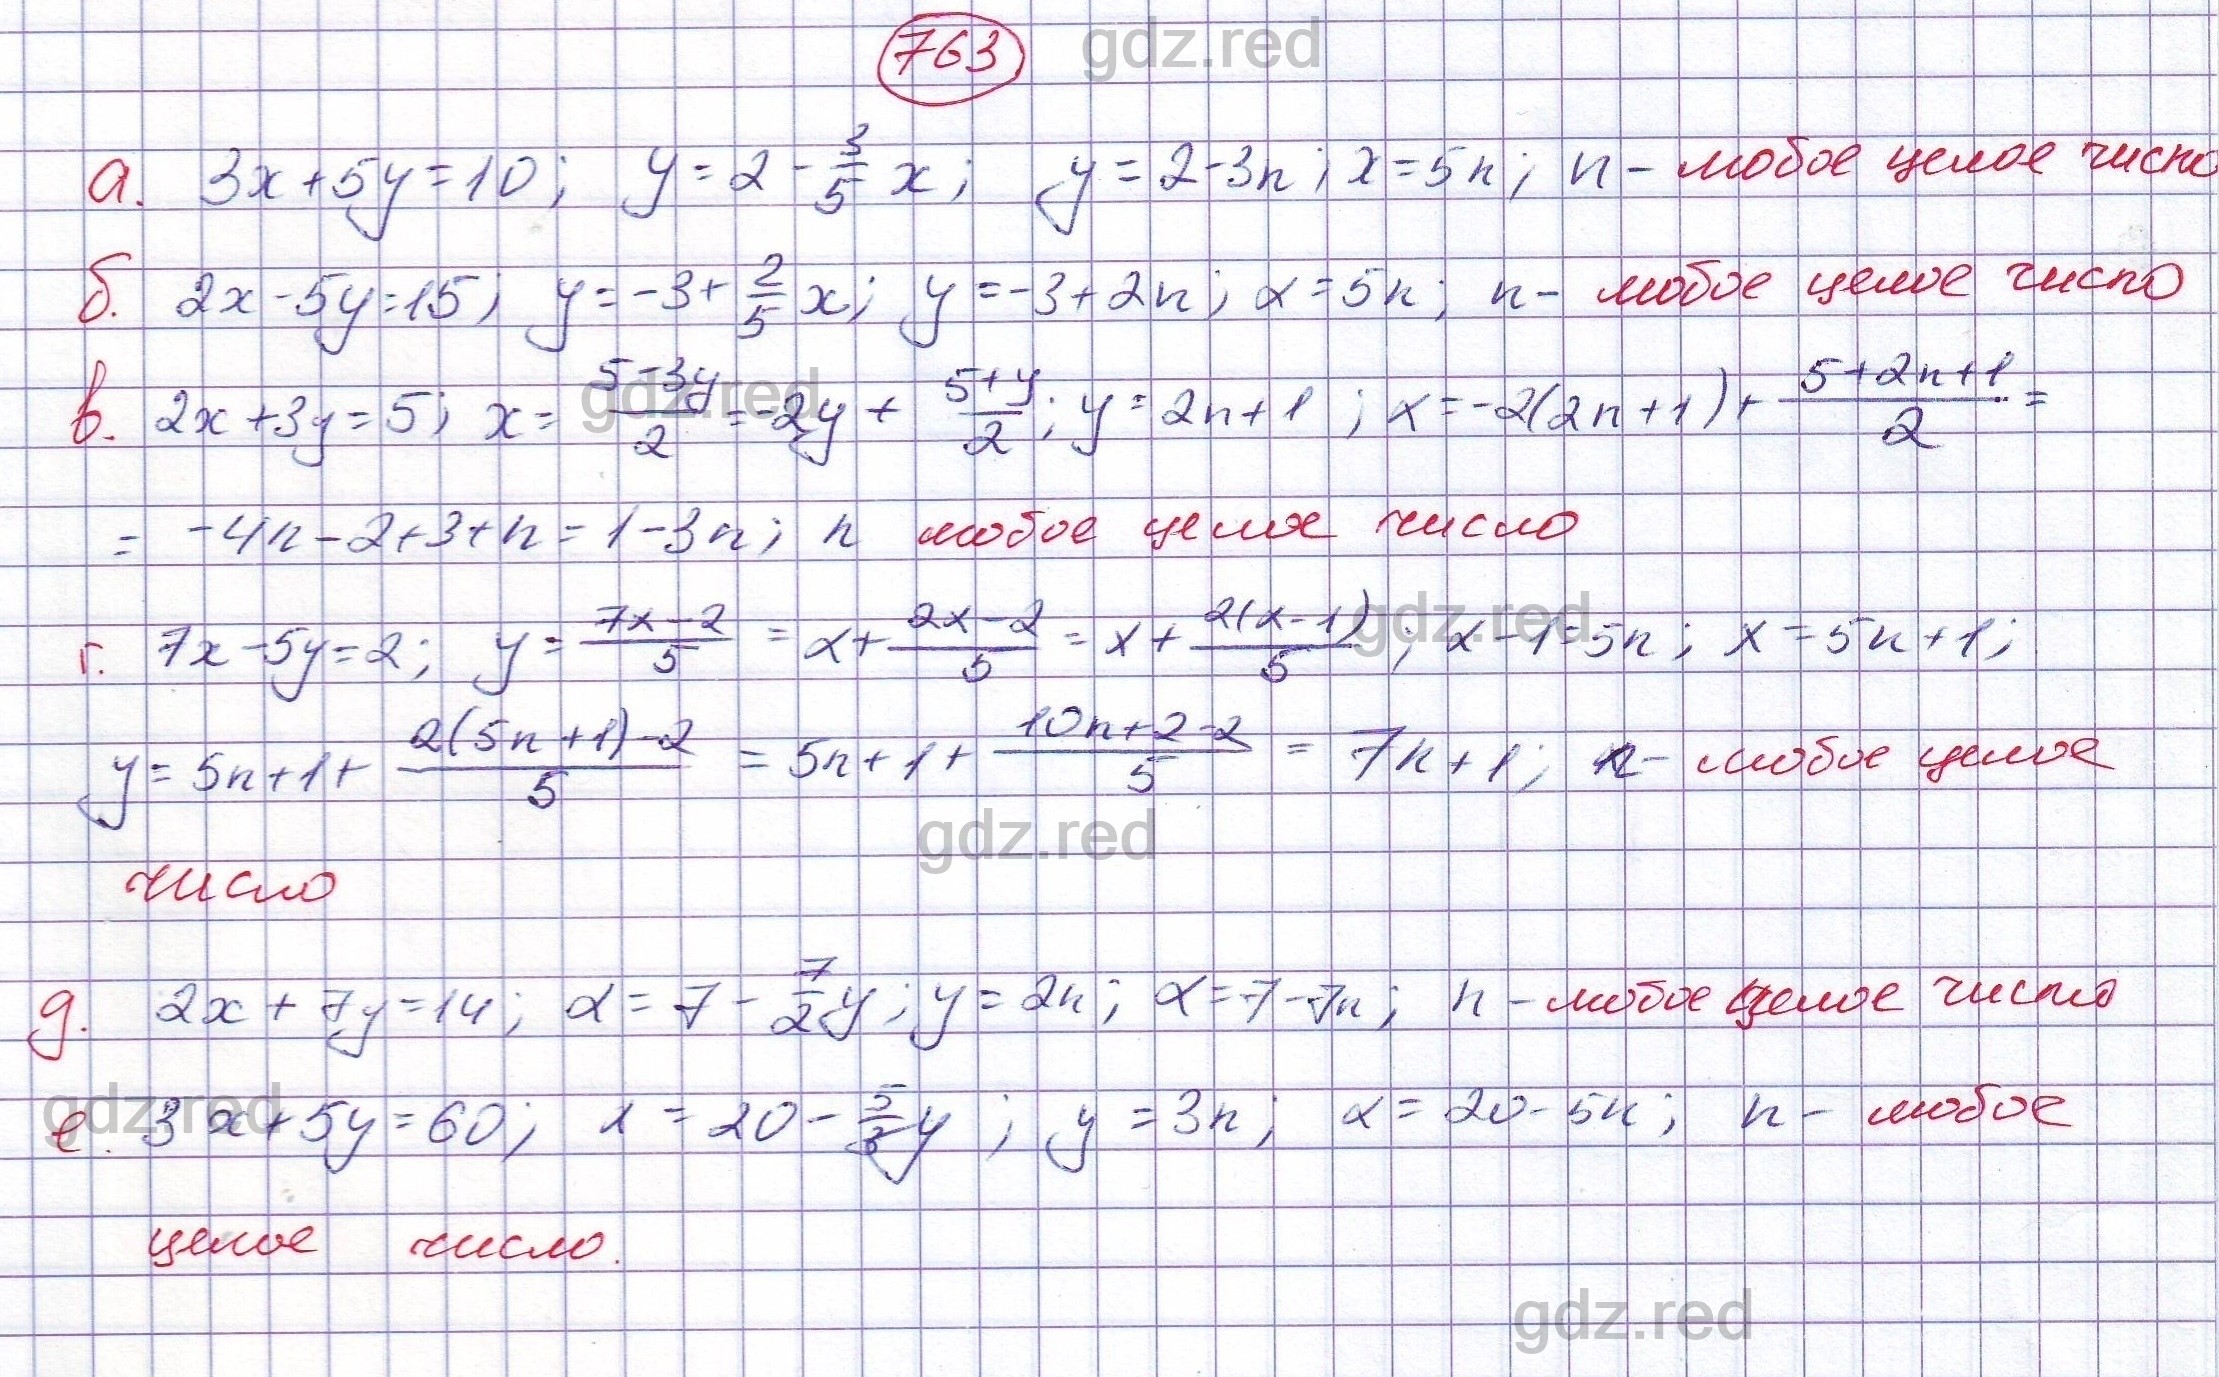 763 gdz.red
а. 3x+5y=10; y=2-3/5 x; y=2-3n; x=5n; n- любое целое число
б. 2x-5y=15; y=-3+2/5 x; y=-3+2n; x=5n; n- любое целое число
в. 2x+3y=5; x=(5-3y)/2=-2y+(5+y)/2; y=2n+1; x=-2(2n+1)+(5+2n+1)/2=
gdz.red
= -4n-2+3+n=1-3n; n любое целое число
г. 7x-5y=2; y=(7x-2)/5=x+(2x-2)/5=x+2(x-1)/5; x-1=5n; x=5n+1;
gdz.red
y=5n+1+(2(5n+1)-2)/5=5n+1+(10n+2-2)/5=7n+1; n- любое целое
gdz.red
число
д. 2x+7y=14; x=7-7/2 y; y=2n; x=7-7n; n- любое целое число
gdz.red
е. 3x+5y=60; x=20-5/3 y; y=3n; x=20-5n; n- любое
целое число.
gdz.red